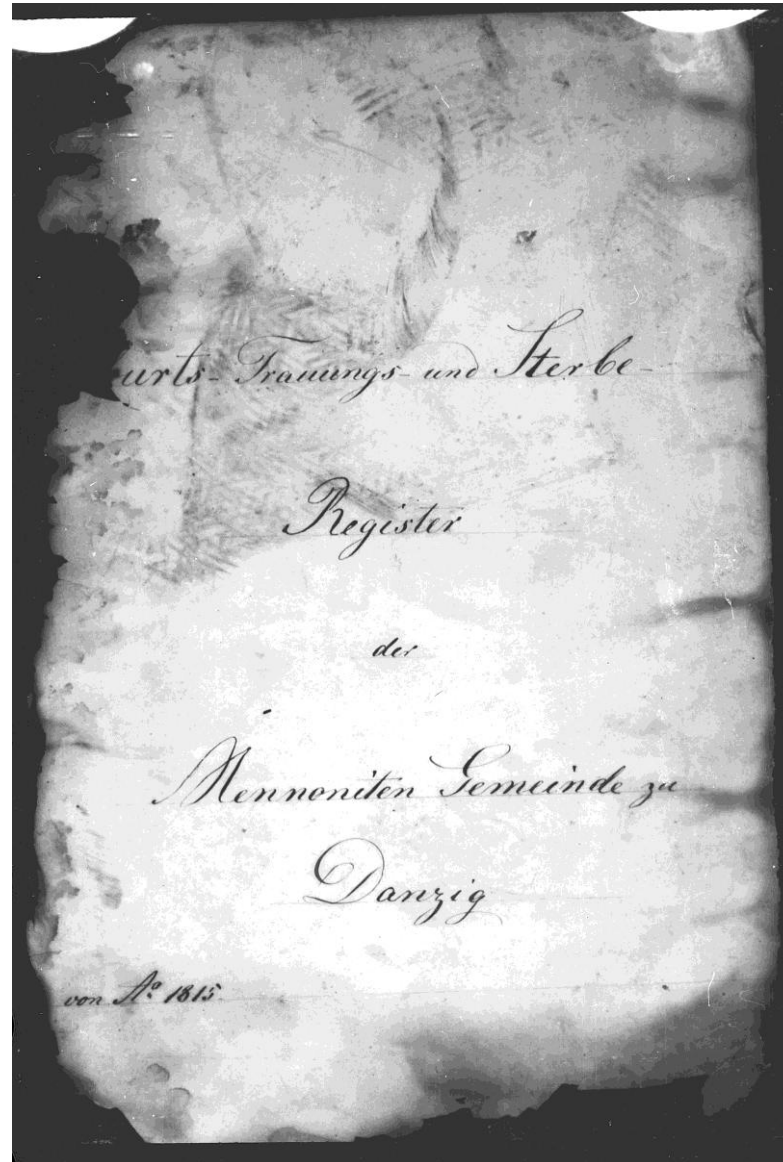 urts-Trauungs- und Sterbe-
Register
der
Mennoniten Gemeinde zu
Danzig
von Aº 1815